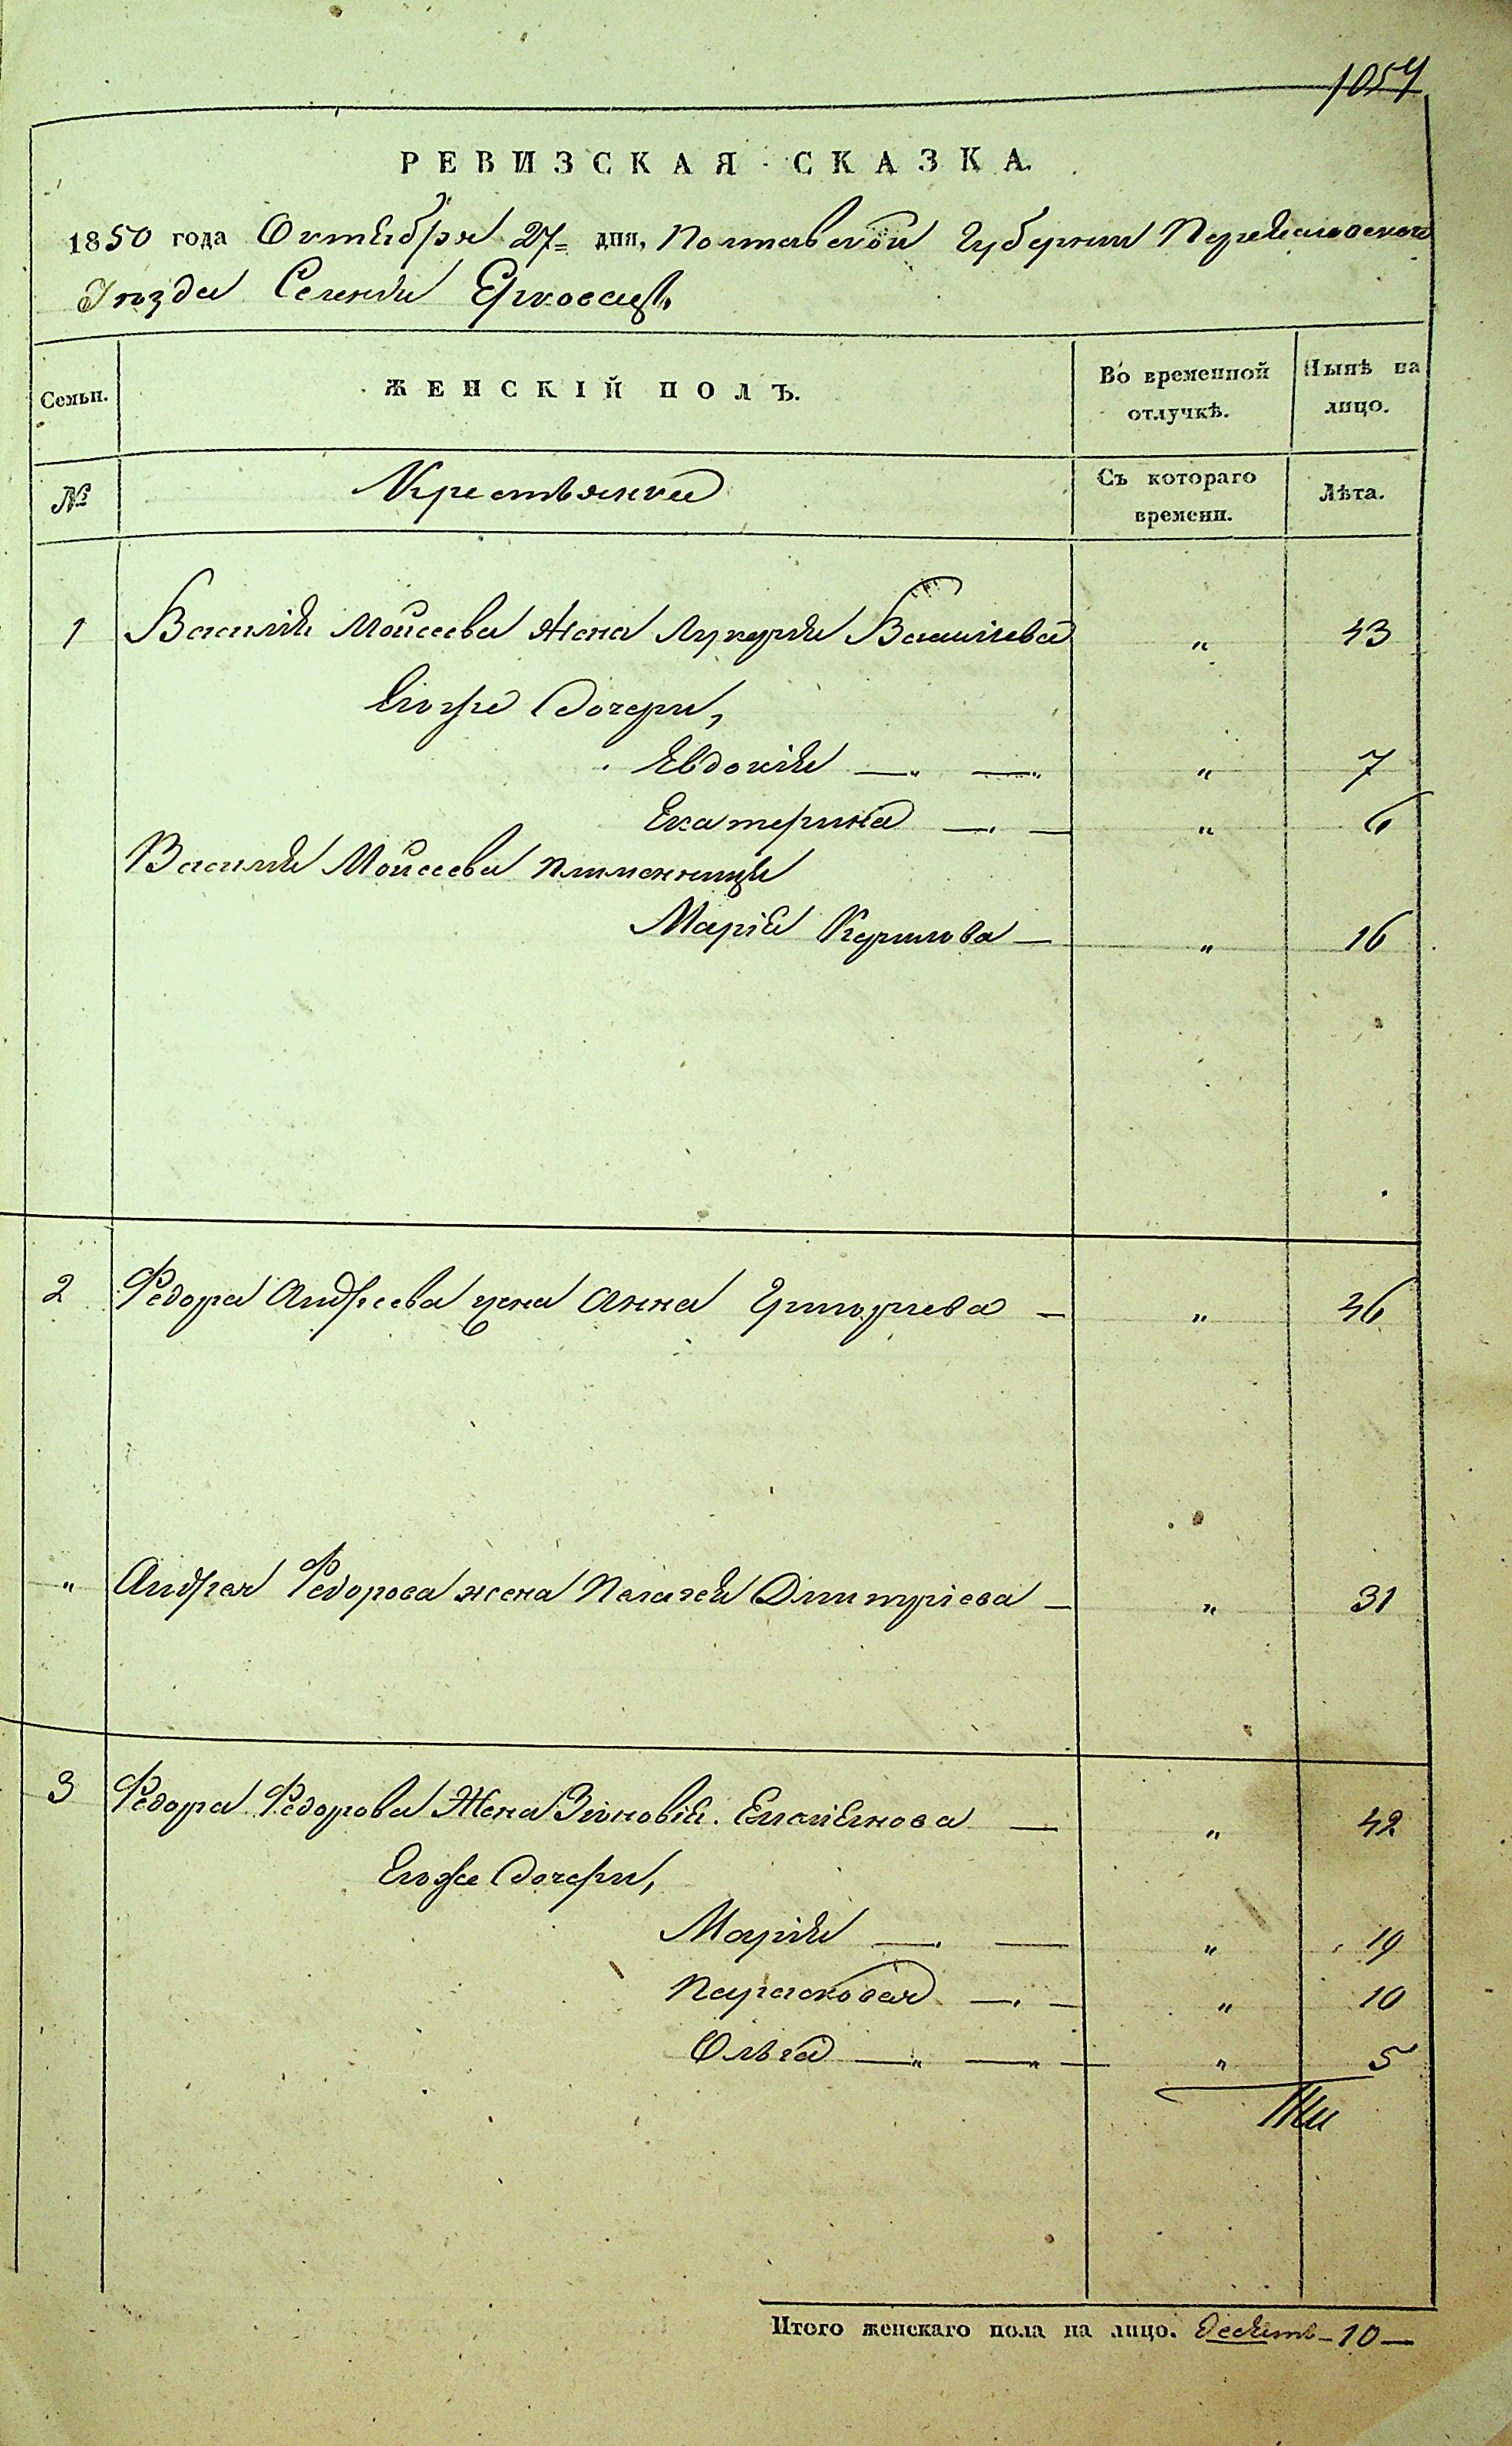 1057
РЕВИЗСКАЯ СКАЗКА.
1850 года Октября 27 дня, Полтавской Губернии Переяславского
Уезда Селения Еркосецъ
Семьи. ЖЕНСКІЙ ПОЛЪ. Во временной отлучкѣ. Нынѣ на лицо.
№ Крестьянки Съ котораго времени. Лѣта.
1 Василия Моисеева Жена Лукерия Васильева „ 43
Его же Дочери,
Евдокия — „ — „ „ 7
Екатерина — „ — „ 6
Василия Моисеева племенница
Марія Курилова — „ 16
2 Федора Андреева жена Анна Григорьева — „ 46
„ Андрея Федорова жена Пелагея Дмитріева — „ 31
3 Федора Федорова Жена Зиновія — „ 42
Его же Дочери,
Марія — „ — „ 19
Парасковея — „ — „ 10
Ольга — „ — „ — „ 5
Итого женскаго пола на лицо. десять – 10 —